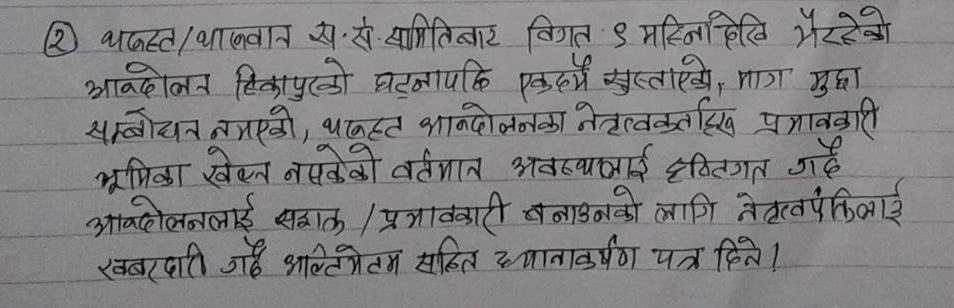 ② थरूहट/थारूवान स.सं.समितिबाट विगत ९ महिनादेखि भैरहेको
आन्दोलन टिकापुरको घटनापछि एकदमै सुस्ताएको, माग मुद्दा
सम्बोधन नभएको, थरूहट आन्दोलनका नेतृत्वकर्ताहरू प्रभावकारी
भूमिका खेल्न नसकेको वर्तमान अवस्थालाई दृष्टिगत गर्दै
आन्दोलनलाई सशक्त /प्रभावकारी बनाउनको लागि नेतृत्वपंक्तिलाई
खबरदारी गर्दै अल्टिमेटम सहित ध्यानाकर्षण पत्र दिने।